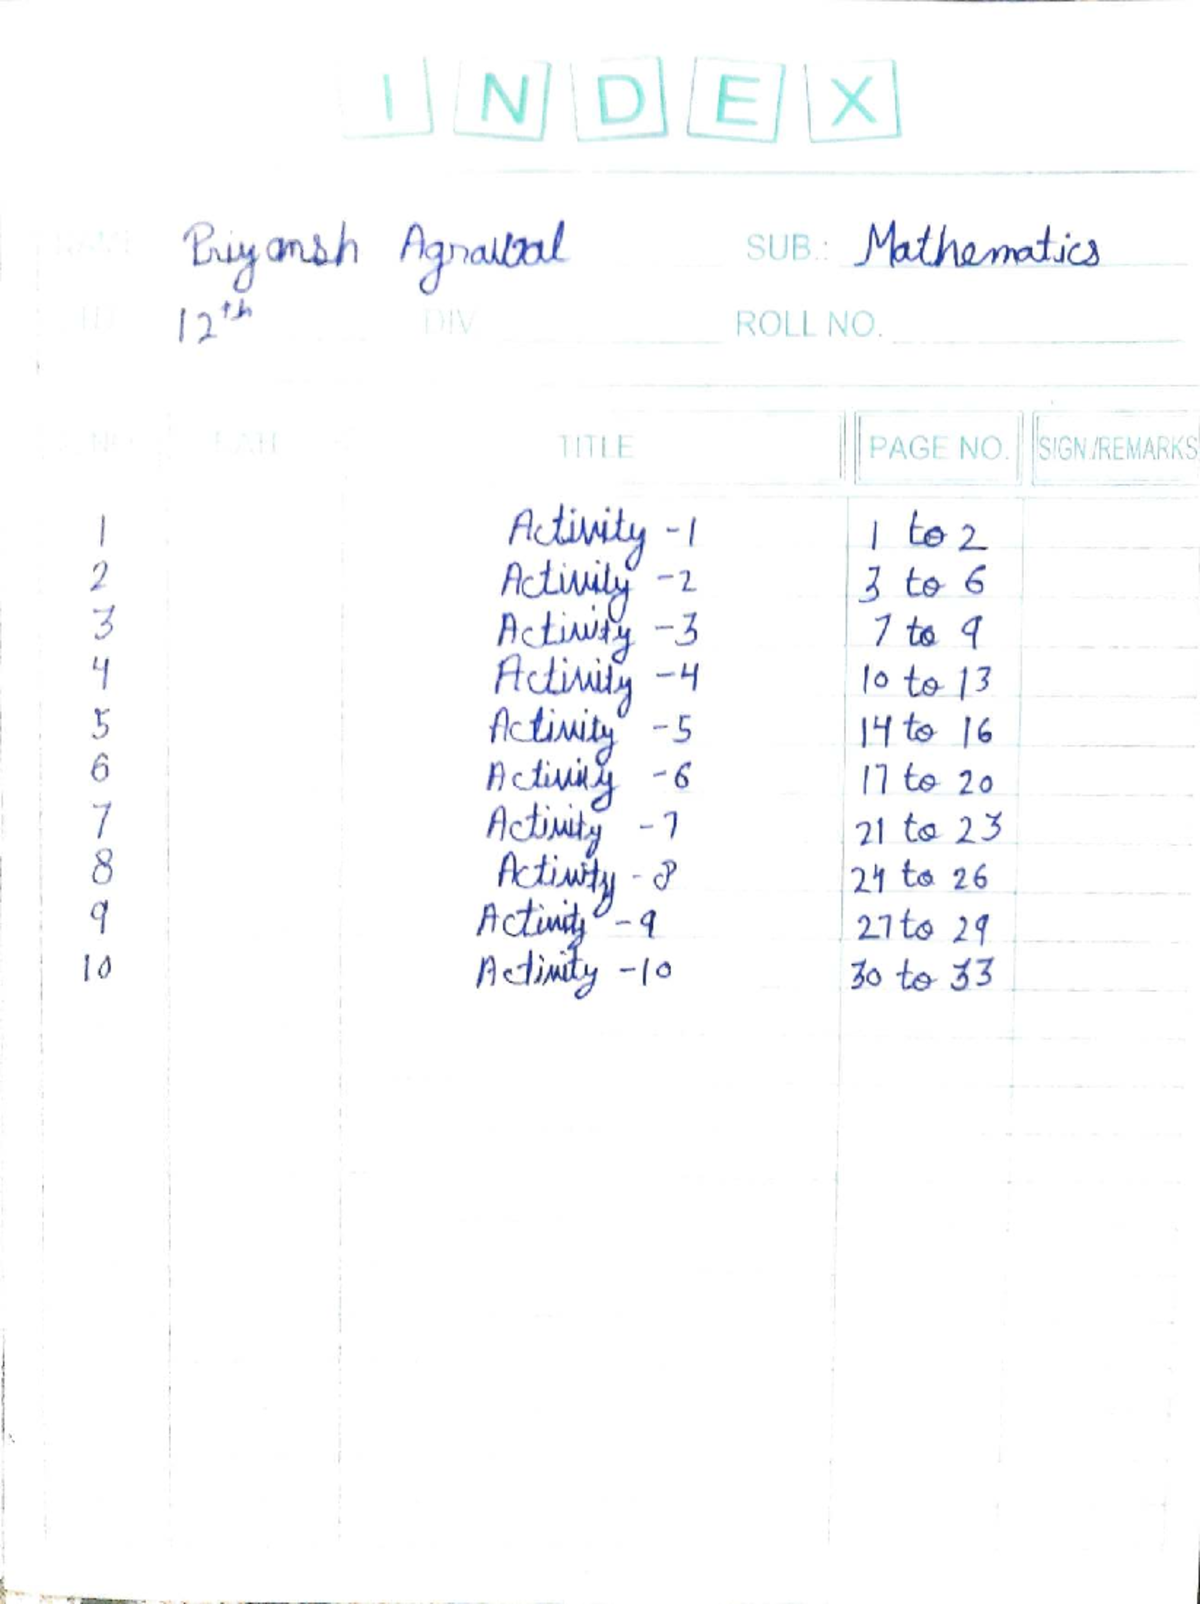 INDEX
Priyansh Agrawal SUB.: Mathematics
12th DIV ROLL NO.
TITLE PAGE NO. SIGN./REMARKS
1 Activity -1 1 to 2
2 Activity -2 3 to 6
3 Activity -3 7 to 9
4 Activity -4 10 to 13
5 Activity -5 14 to 16
6 Activity -6 17 to 20
7 Activity -7 21 to 23
8 Activity -8 24 to 26
9 Activity -9 27 to 29
10 Activity -10 30 to 33